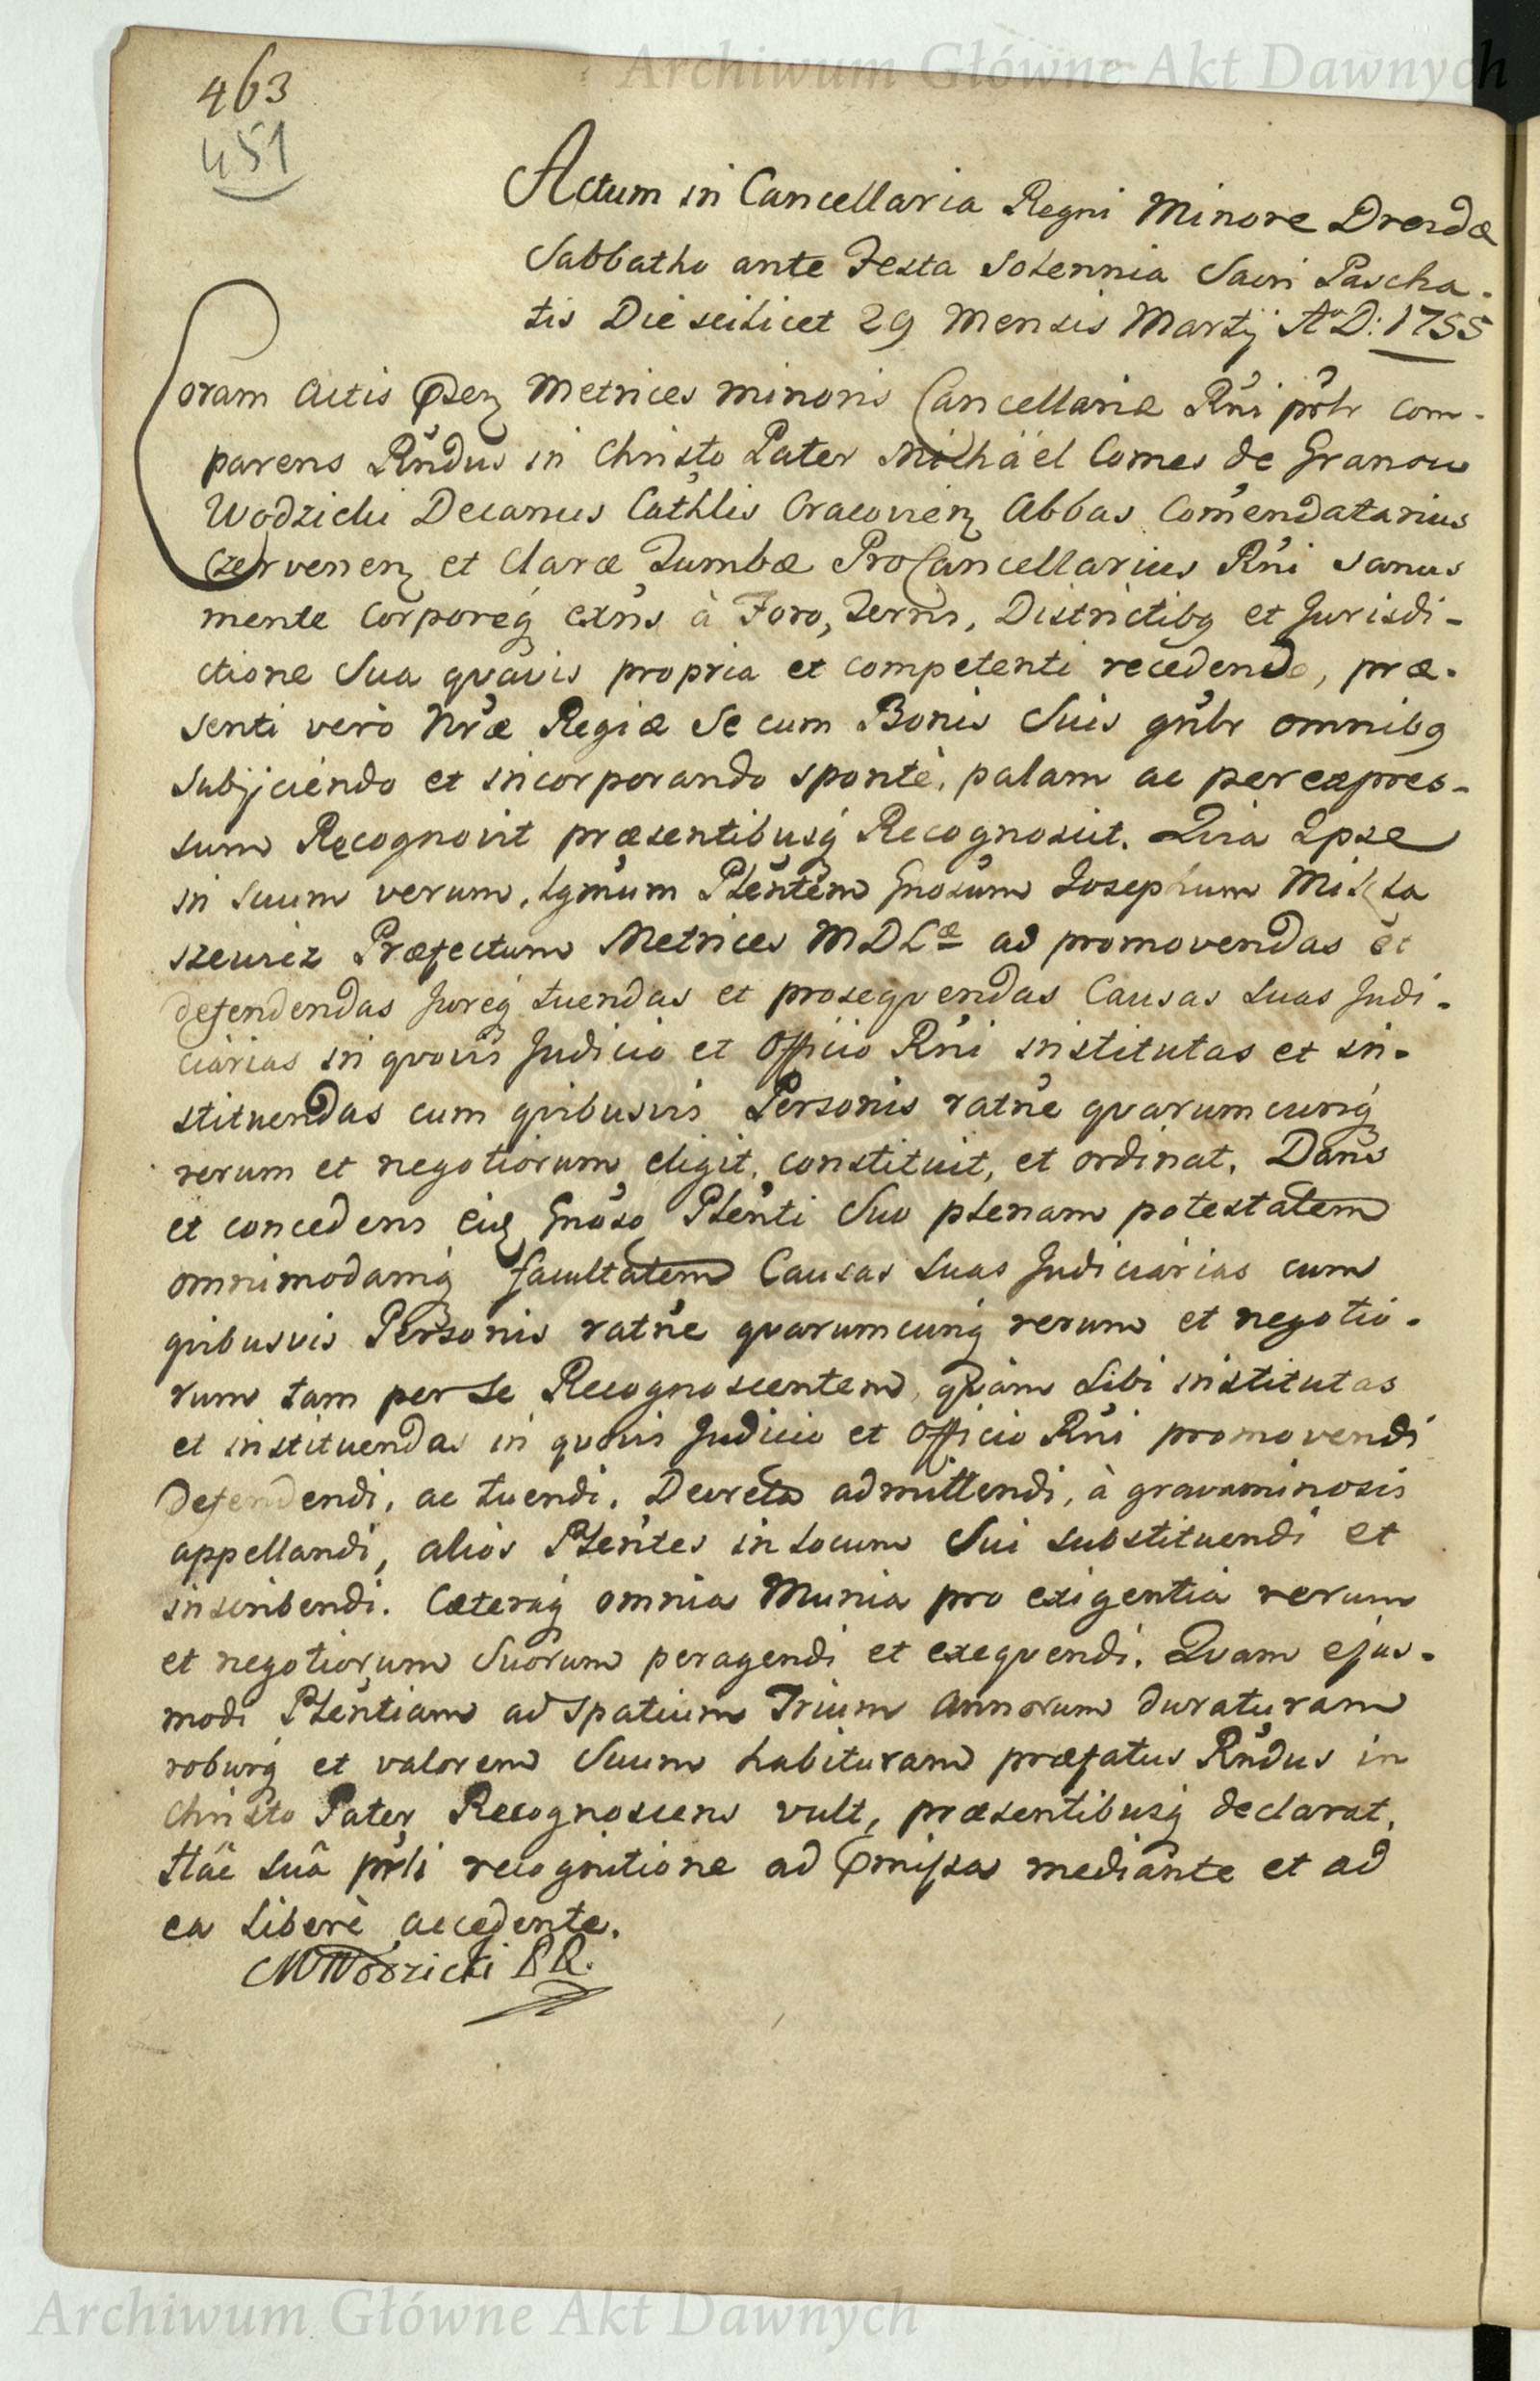 Archiwum Główne Akt Dawnych
463
451
Actum in Cancellaria Regni Minore Dresdæ
Sabbatho ante Festa Solennia Sacri Pascha-
tis Die scilicet 29 Mensis Martij Aº D: 1755
Coram Actis Præsen Metrices Minoris Cancellariæ Rni pslr com-
parens Rndus in Christo Pater Michäel Comes de Granow
Wodzicki Decanus Cathlis Cracovien Abbas Comendatarius
Czervenen et Claræ Tumbæ ProCancellarius Rni sanus
mente Corporeq exns à Foro, Terris, Districtibq et Jurisdi-
ctione Sua quavis propria et competenti recedendo, præ-
senti verò Nræ Regiæ Se cum Bonis Suis gnlr omnibq
Subijciendo et incorporando spontè, palam ac per expres-
sum Recognovit præsentibusq Recognoscit. Quia Ipse
in Suum verum, lgmum Plentem Gnosum Josephum Mikla
szewicz Præfectum Metrices MDLæ ad promovendas et
defendendas Jureq tuendas et prosequendas Causas Suas Judi-
ciarias in quovis Judicio et Officio Rni institutas et in-
stituendas cum quibusvis Personis ratne quarumcunq
rerum et negotiorum eligit, constituit, et ordinat. Dans
et concedens eid Gnoso Plenti Suo plenam potestatem
omnimodamq facultatem Causas Suas Judiciarias cum
quibusvis Personis ratne quarumcunq rerum et negotio-
rum tam per Se Recognoscentem, quàm Sibi institutas
et instituendas in quovis Judicio et Officio Rni promovendi
defendendi, ac tuendi, Decreta admittendi, à gravaminosis
appellandi, alios Plentes in locum Sui substituendi et
inscribendi. Cæteraq omnia Munia pro exigentia rerum
et negotiorum Suorum peragendi et exequendi. Quam ejus-
modi Plentiam ad Spatium Trium Annorum duraturam
roburq et valorem Suum habituram præfatus Rndus in
Christo Pater Recognoscens vult, præsentibusq declarat,
Hâc Suâ prsli recognitione ad Præmissa mediante et ad
ea Liberè accedente.
MWodzicki PR.
Archiwum Główne Akt Dawnych